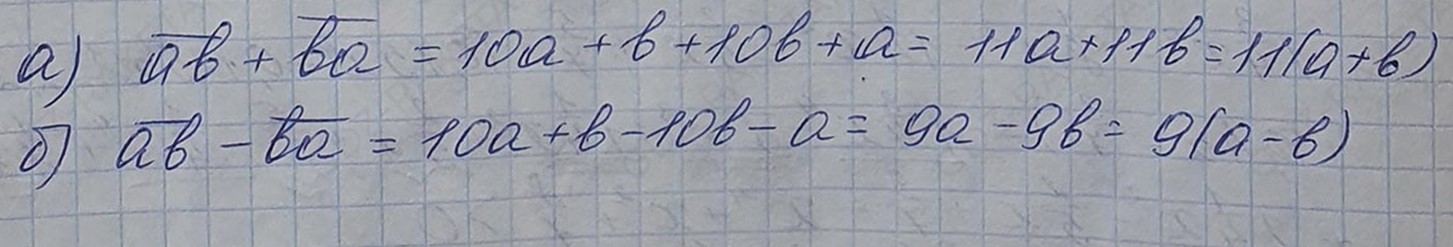 а) a̅b̅ + b̅a̅ = 10a + b + 10b + a = 11a + 11b = 11(a + b)
б) a̅b̅ - b̅a̅ = 10a + b - 10b - a = 9a - 9b = 9(a - b)